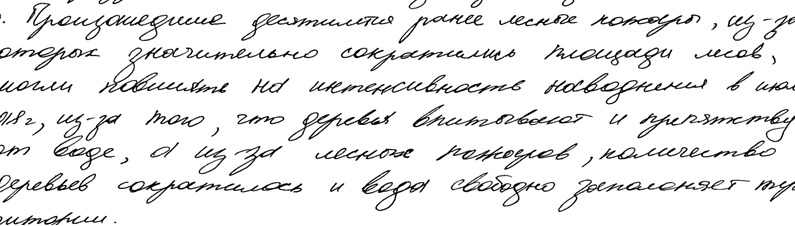 . Произошедшие десятилетия ранее лесные пожары, из-за
оторых значительно сократились площади лесов,
могли повлиять на интенсивность наводнения в июл
018г, из-за того, что деревья впитывают и препятству
от воде, а из за лесных пожаров, количество
деревьев сократилось и вода свободно заполоняет тер
ритории.